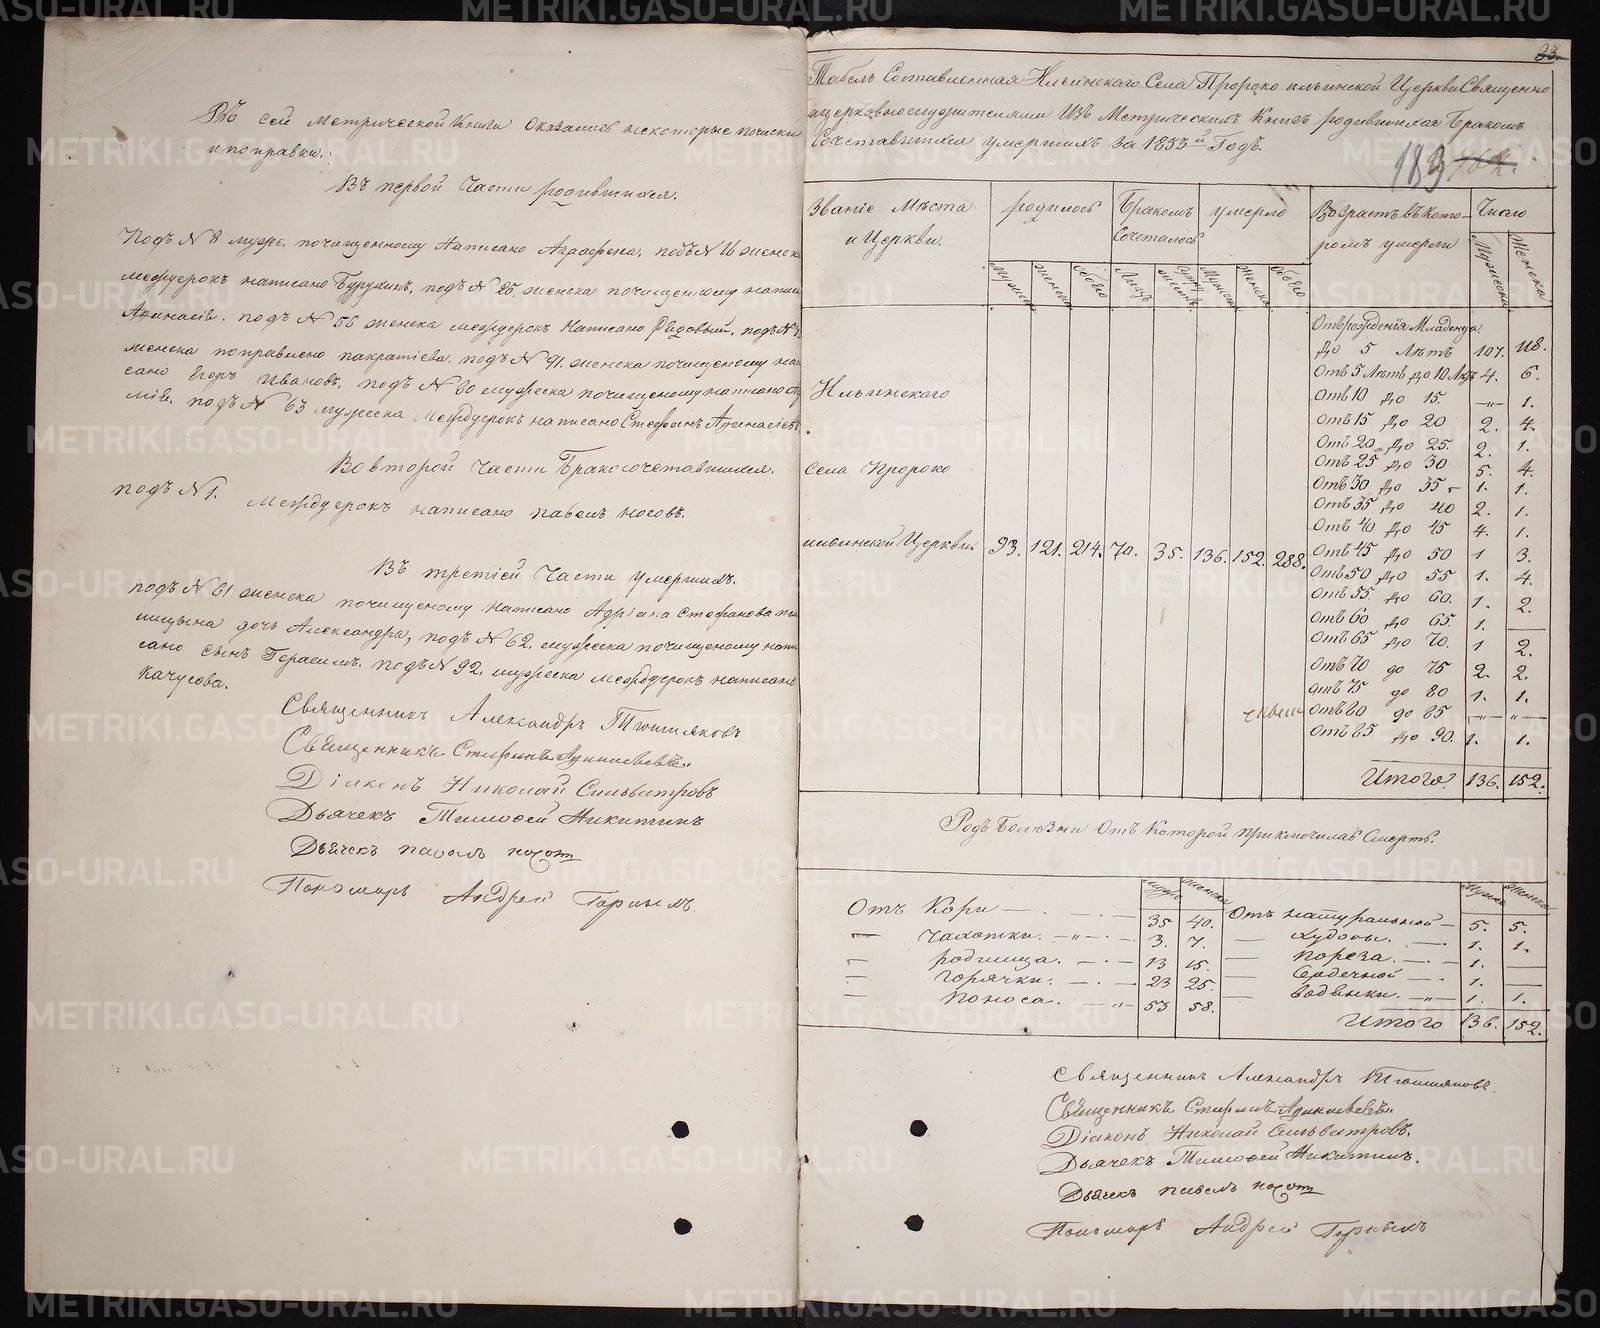 Въ сей Метрической Книги Оказались некоторые почиски
и поправки.
Въ первой Части родившихся.
Подъ № 8 мужс. почищенному Написано Аграфена, подъ № 16 женска
междурокъ написано подъ № 25 женска почищенному написано
подъ № 56 женска междурокъ Написано подъ №
женска поправлено подъ № 91. женска почищеному на
сано Егоръ Ивановъ, подъ № 60 мужеска почищеному написано
подъ № 63 мужеска Междурокъ написано Стефанъ
Во второй части Бракосочетавшихся.
подъ № 1. Междурокъ написано павелъ носовъ.
Въ третiей Части умершихъ.
подъ № 61 женска почищеному написано Адрiана Стефанова
дочь Александра, подъ № 62. мужеска почищеному напи
сано сынъ Герасимъ, подъ № 92. мужеска междурокъ написано
Качусова.
Священникъ Александръ Тюшняковъ
Священникъ Стефанъ
Дiаконъ Николай Сильвестровъ
Дьячекъ Тимофей Никитинъ
Дьячекъ павелъ носоvъ
Пономарь Андрей Горныхъ
23.
Табель Составленная Ильинского Села Пророко ильинской Церкви Священно
и церковнослужителями Изъ Метрическихъ Книгъ родившихся Бракомъ
Сочетавшихся умершихъ за 1853й Годъ.
183
Званiе Мѣста и Церкви. родилось Бракомъ Сочеталось умерло Возрастъ въ кото- ромъ умерли Число
мужеска женска обоего Лицъ мужеска женска обоего Мужеска Женска
Отъ рожденiя Младенца
до 5 Лѣтъ 107. 118.
Отъ 5 Лѣтъ до 10 Лѣтъ 4. 6.
Отъ 10 до 15. —"— 1.
Отъ 15 до 20 2. 4.
Отъ 20 до 25. 2. 1.
Отъ 25 до 30 5. 4.
Отъ 30 до 35 1. 1.
Отъ 35 до 40 2. 1.
Отъ 40 до 45 4. 1.
Отъ 45 до 50 1 3.
Отъ 50 до 55 1. 4.
Отъ 55 до 60. 1. 2.
Отъ 60 до 65 1. —
Отъ 65 до 70. 1 2.
Отъ 70 до 75 2. 2.
отъ 75 до 80 1. 1.
Отъ 80 до 85 —"— —"—
Отъ 85 до 90. 1. 1.
Ильинского
села Пророко
ильинской Церкви 93. 121. 214. 70. 35. 136. 152. 288.
Итого 136. 152.
Родъ Болѣзни Отъ Которой приключилась Смерть.
мужс женска Мужска Женска
Отъ Кори 35 40. Отъ натуральной 5. 5.
— Чахотки. 3. 7. — худобы. 1. 1.
— родимца. 13 15. — пореза 1. —
— горячки. 23 25. — Сердечной 1. —
— Поноса. 53 58. — Водянки. 1. 1.
Итого 136. 152.
Священникъ Александръ Тюшняковъ.
Священникъ Стефанъ
Дiаконъ Николай Сильвестровъ.
Дьячекъ Тимофей Никитинъ.
Дьячекъ павелъ носоvъ
Пономарь Андрей Горныхъ
METRIKI.GASO-URAL.RU